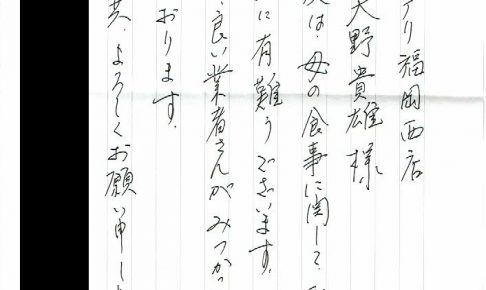 アリ福岡西店
天野貴雄様
は、母の食事に関して、
に有難うございます。
良い業者さんがみつかっ
おります。
共、よろしくお願い申し